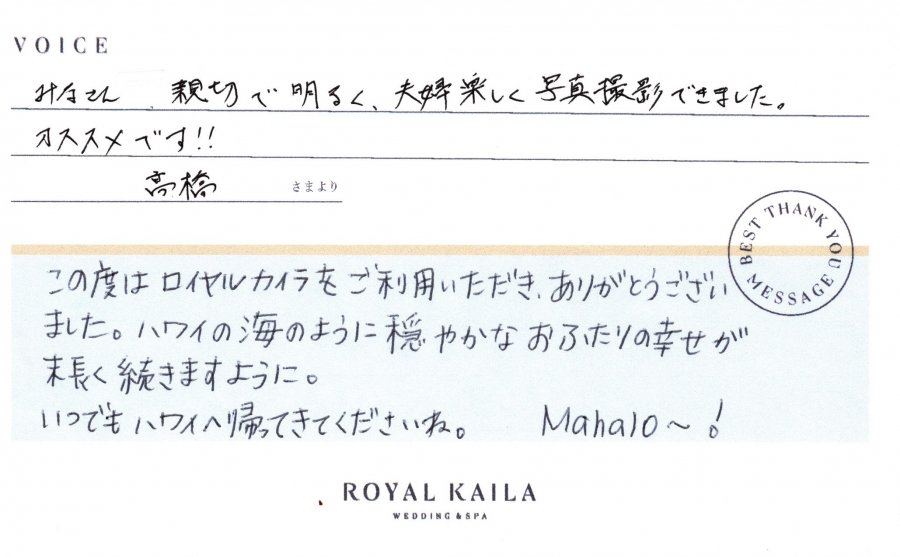 VOICE
みなさん 親切で明るく、夫婦楽しく写真撮影できました。
オススメです!!
高橋 さまより
BEST THANK YOU MESSAGE
この度はロイヤルカイラをご利用いただき、ありがとうござい
ました。ハワイの海のように穏やかなおふたりの幸せが
末長く続きますように。
いつでもハワイへ帰ってきてくださいね。 Mahalo~!
ROYAL KAILA
WEDDING & SPA